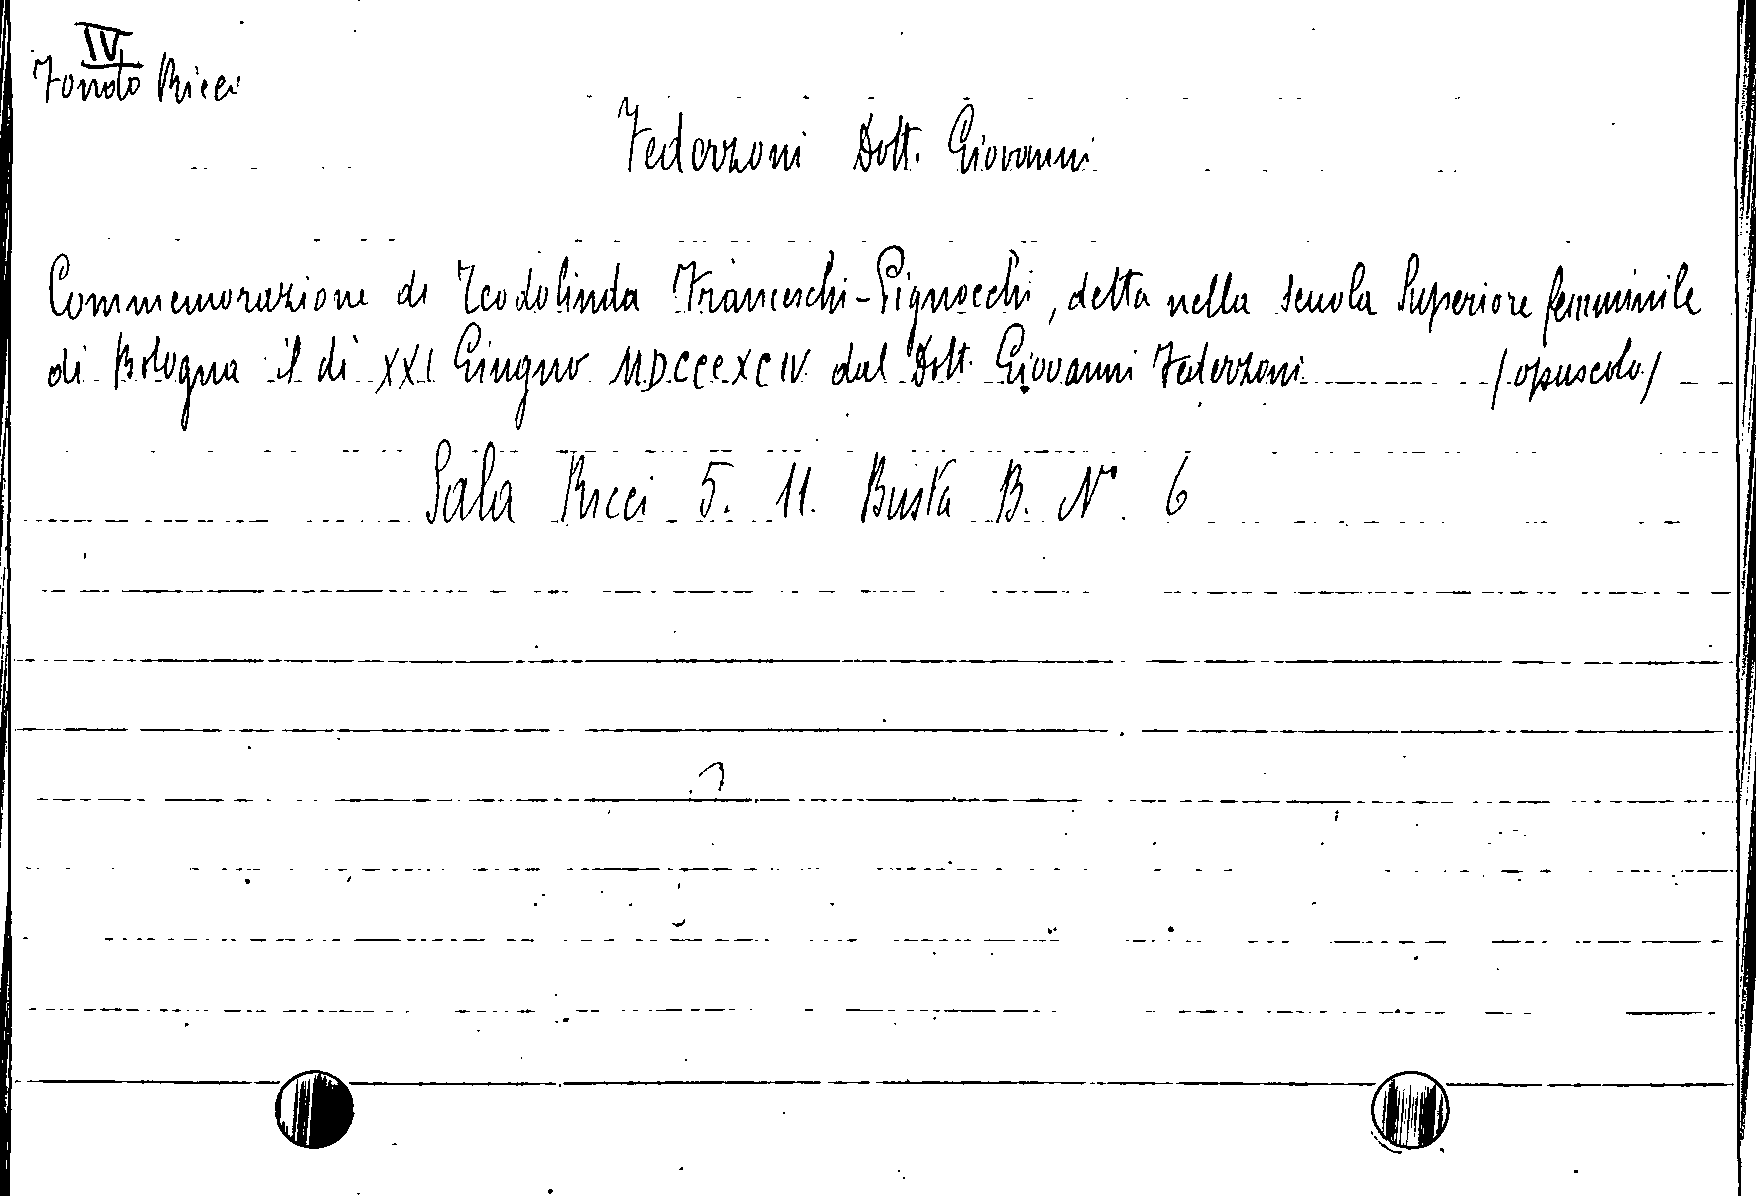 IV
Fondo Ricci
Federzoni Dott. Giovanni
Commemorazione di Teodolinda Franceschi-Pignocchi, detta nella scuola Superiore femminile
di Bologna il dì XXI Giugno MDCCCXCIV dal Dott. Giovanni Federzoni (opuscolo)
Sala Ricci 5. 11. Busta B. N° 6